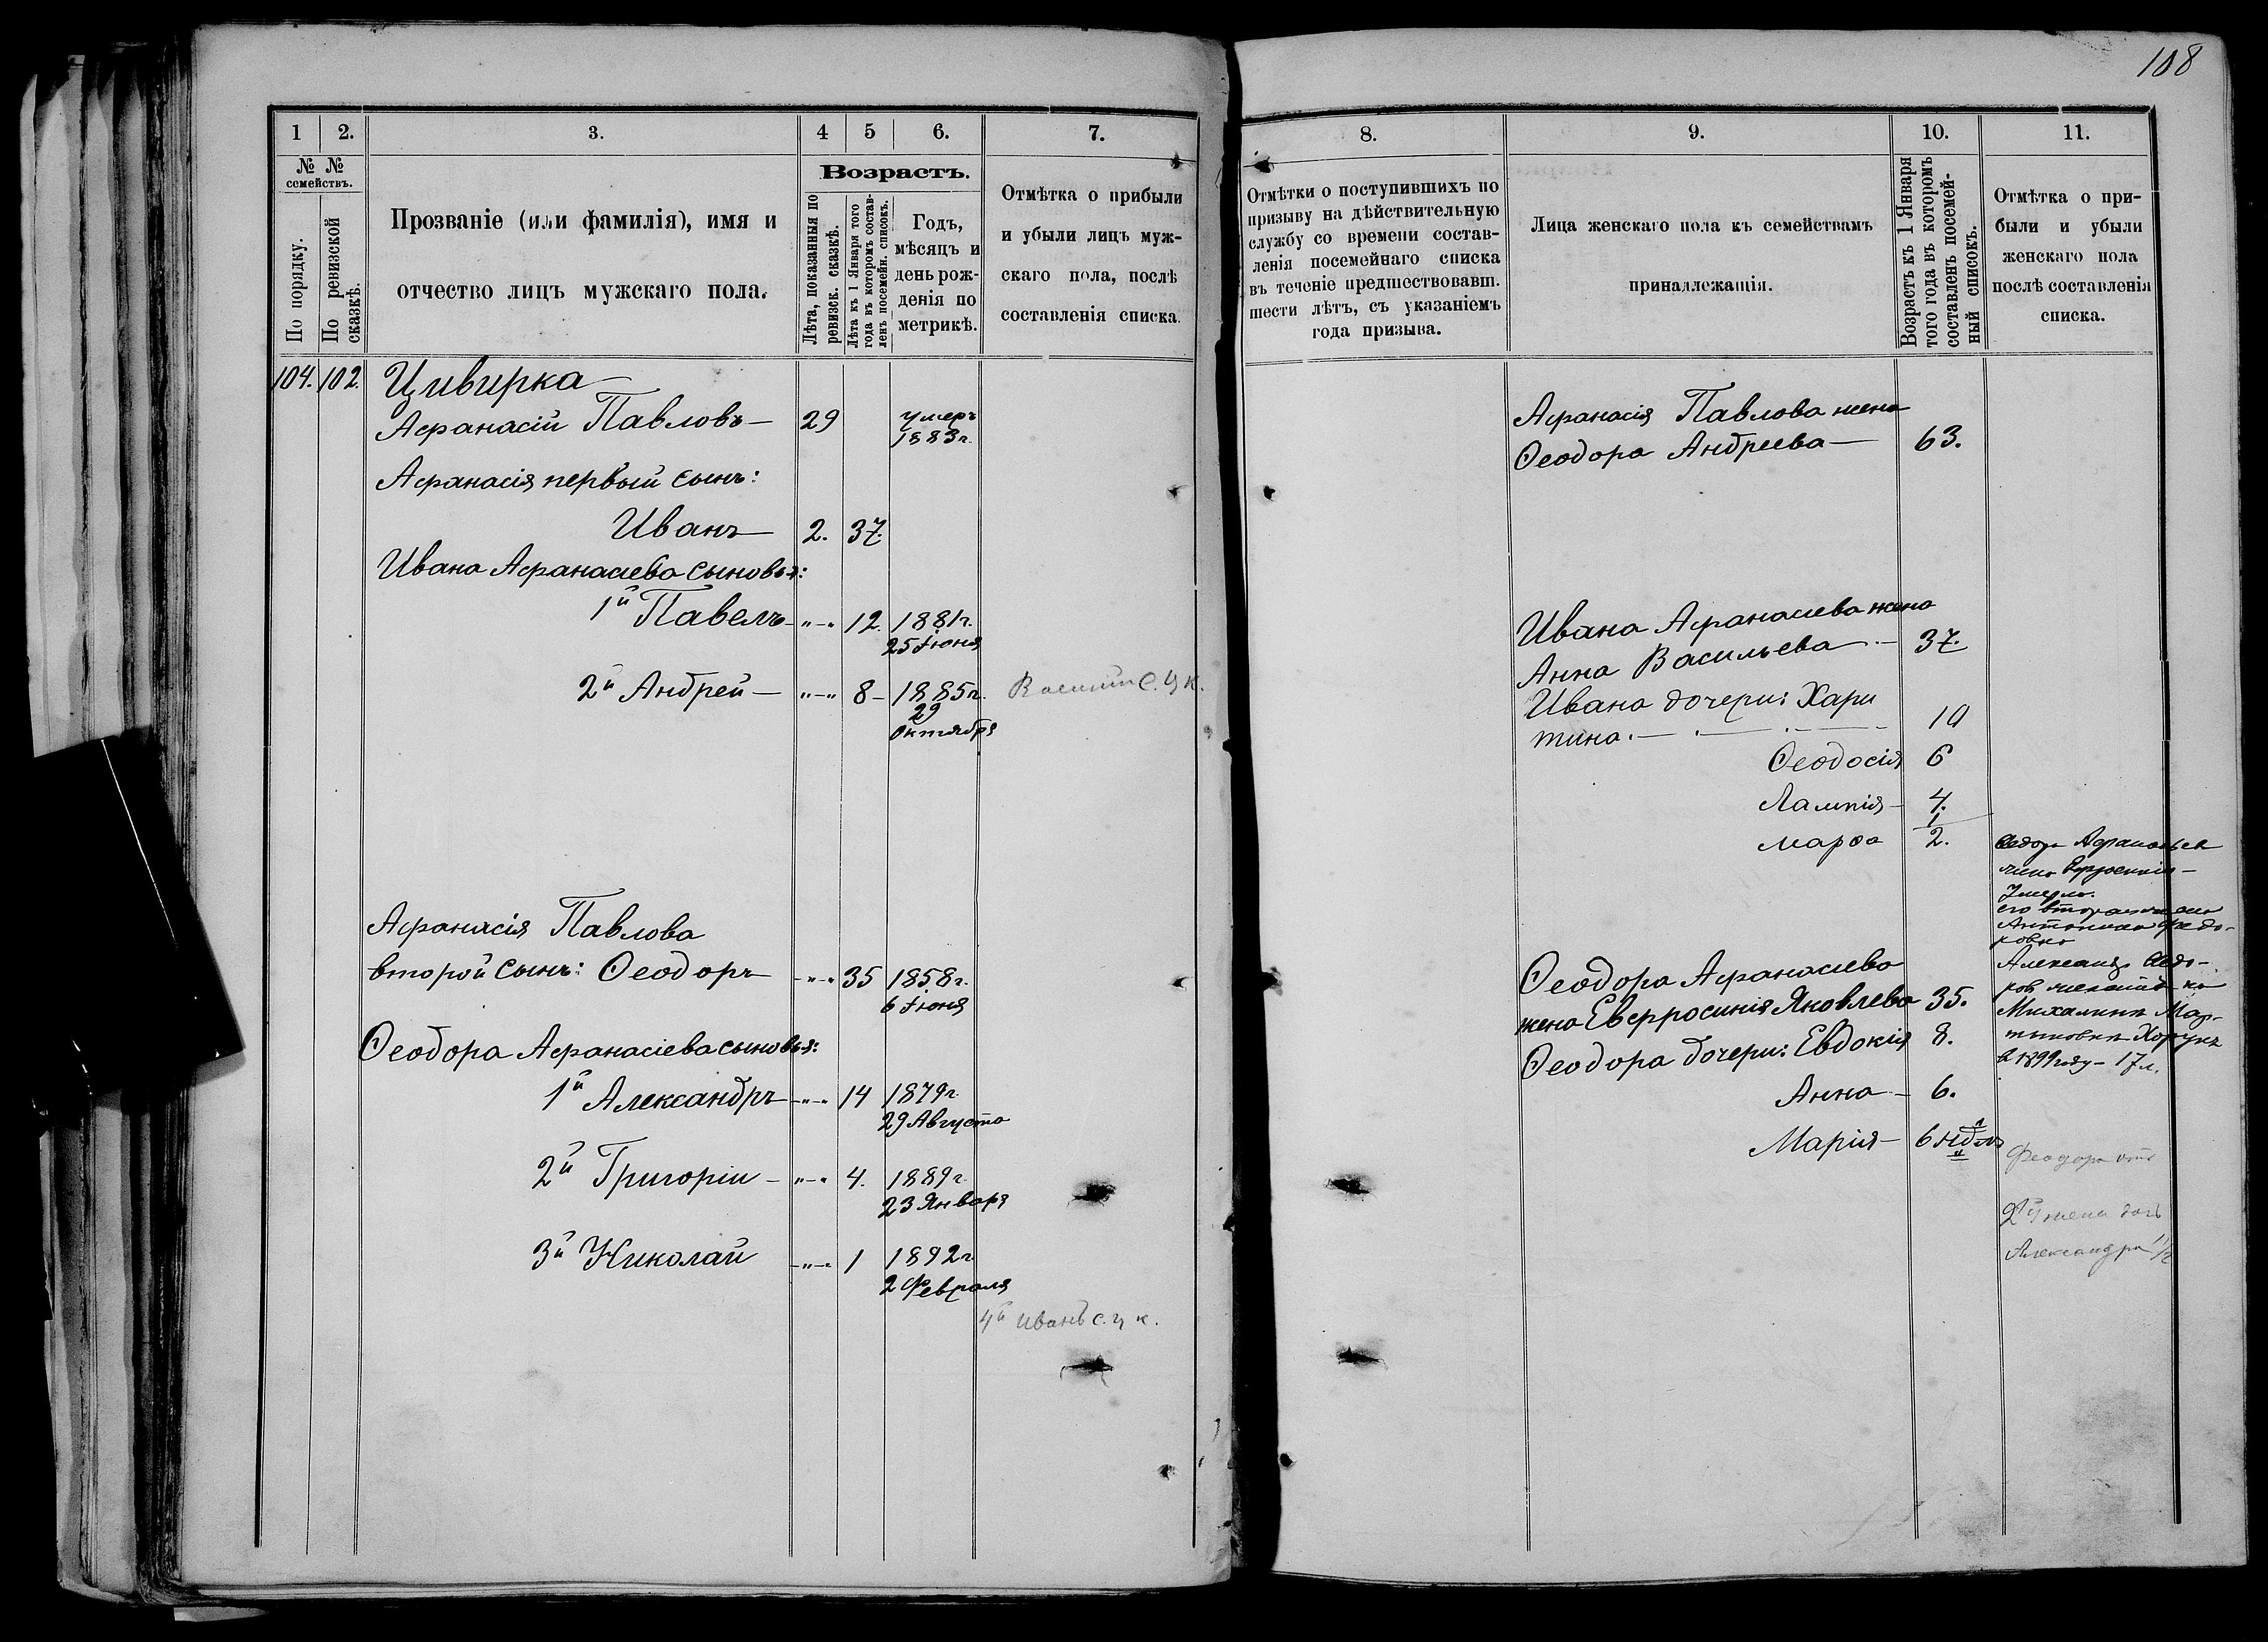 108
1 2. 3. 4 5 6. 7.
№ №
семействъ.
По порядку.
По ревизской
сказкѣ.
Прозваніе (или фамилія), имя и
отчество лицъ мужскаго пола.
Возрастъ.
Лѣта, показанныя по
ревизск. сказкѣ.
Лѣта къ 1 Января того
года въ которомъ состав-
ленъ посемейн. списокъ.
Годъ,
мѣсяцъ и
день рож-
денія по
метрикѣ.
Отмѣтка о прибыли
и убыли лицъ муж-
скаго пола, послѣ
составленія списка.
104. 102. Цивирка
Афанасій Павловъ — 29 умеръ
1883 г.
Афанасія первый сынъ:
Иванъ — 2. 37.
Ивана Афанасіева сыновья:
1й Павелъ — "—" 12. 1881 г.
25 Іюня
2й Андрей — "—" 8 — 1885 г. Василій С. Ц К.
29
Октября
Афанасія Павлова
второй сынъ: Ѳеодоръ — "—" 35 1858 г.
6 Іюня
Ѳеодора Афанасіева сыновья:
1й Александръ — "—" 14 1879 г.
29 Августа
2й Григорій — "—" 4. 1889 г.
23 Января
3й Николай — "—" 1 1892 г.
2 Февраля
4й Иванъ С. Ц К.
8. 9. 10. 11.
Отмѣтки о поступившихъ по
призыву на дѣйствительную
службу со времени состав-
ленія посемейнаго списка
въ теченіе предшествовавш.
шести лѣтъ, съ указаніемъ
года призыва.
Лица женскаго пола къ семействамъ
принадлежащія.
Возрастъ къ 1 Января
того года въ которомъ
составленъ посемей-
ный списокъ.
Отмѣтка о при-
были и убыли
женскаго пола
послѣ составленія
списка.
Афанасія Павлова жена
Ѳеодора Андреева — 63.
Ивана Афанасіева жена
Анна Васильева — 37.
Ивана дочери: Хари
тина. — 10
Ѳеодосія 6
Лампія — 4.
1
Марѳа 2.
Ѳеодора Афанасіева
жена Евфросинія Яковлева 35.
Ѳеодора дочери: Евдокія 8.
Анна — 6.
Марія — 6 нд.
Ѳедоръ Афанасьев
жена Ефросинія —
Умерла.
его вторая жена
Антонина Федо-
ровна
Александръ Ѳедо-
ров женатъ на
Михалине Мар-
тиновне
в 1899 году — 17 л.
Феодора
2й жена дочь
Александра 1/2